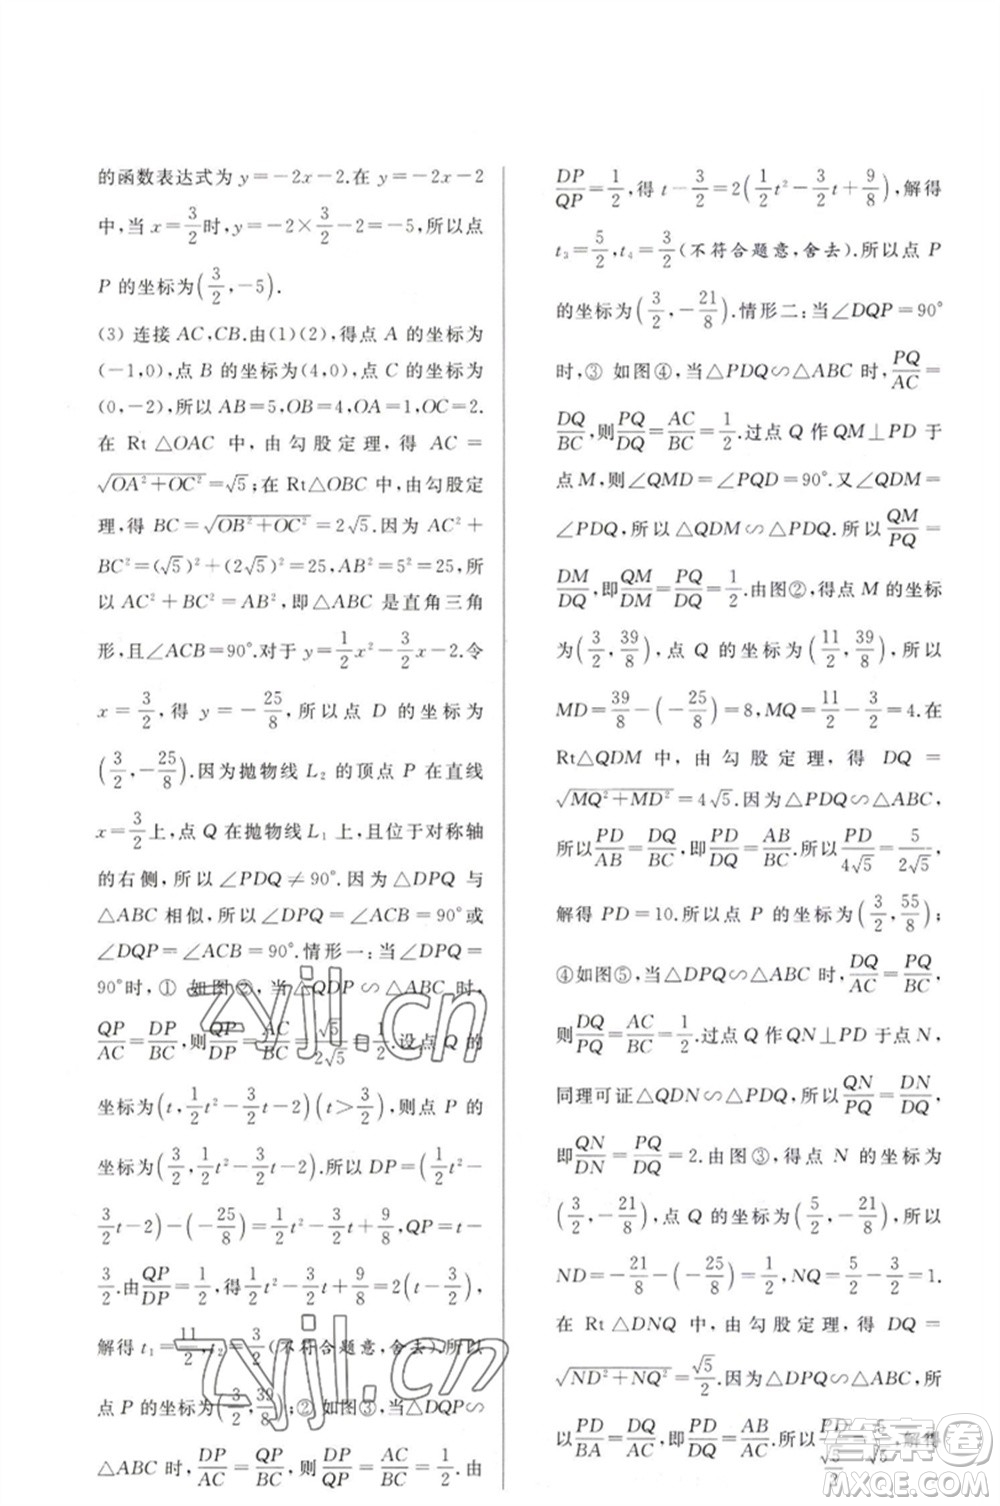 的函数表达式为 y=-2x-2.在 y=-2x-2
中,当 x=3/2时,y=-2×3/2-2=-5,所以点
P 的坐标为(3/2,-5).
(3) 连接 AC,CB.由(1)(2),得点 A 的坐标为
(-1,0),点 B 的坐标为(4,0),点 C 的坐标为
(0,-2),所以 AB=5,OB=4,OA=1,OC=2.
在 Rt△OAC 中,由勾股定理,得 AC=
√(OA²+OC²)=√5;在 Rt△OBC 中,由勾股定
理,得 BC=√(OB²+OC²)=2√5.因为 AC²+
BC²=(√5)²+(2√5)²=25,AB²=5²=25,所
以 AC²+BC²=AB²,即△ABC 是直角三角
形,且∠ACB=90°.对于 y=1/2x²-3/2x-2.令
x=3/2,得 y=-25/8,所以点 D 的坐标为
(3/2,-25/8).因为抛物线 L₂ 的顶点 P 在直线
x=3/2上,点 Q 在抛物线 L₁ 上,且位于对称轴
的右侧,所以∠PDQ≠90°.因为△DPQ 与
△ABC 相似,所以∠DPQ=∠ACB=90°或
∠DQP=∠ACB=90°.情形一:当∠DPQ=
90°时,① 如图②,当△QDP∽△ABC 时,
QP/AC=DP/BC,则QP/DP=AC/BC=√5/2√5=1/2.设点 Q 的
坐标为(t,1/2t²-3/2t-2)(t>3/2),则点 P 的
坐标为(3/2,1/2t²-3/2t-2).所以 DP=(1/2t²-
3/2t-2)-(-25/8)=1/2t²-3/2t+9/8,QP=t-
3/2.由QP/DP=1/2,得1/2t²-3/2t+9/8=2(t-3/2),
解得 t₁=11/2,t₂=3/2(不符合题意,舍去).所以
点 P 的坐标为(3/2,39/8).② 如图③,当△DPQ∽
△ABC 时,DP/AC=PQ/BC,则DP/PQ=AC/BC=1/2.由
DP/QP=1/2,得 t-3/2=2(1/2t²-3/2t+9/8),解得
t₃=5/2,t₄=3/2(不符合题意,舍去).所以点 P
的坐标为(3/2,-21/8).情形二:当∠DQP=90°
时,③ 如图④,当△PDQ∽△ABC 时,PQ/AC=
DQ/BC,则PQ/DQ=AC/BC=1/2.过点 Q 作 QM⊥PD 于
点 M,则∠QMD=∠PQD=90°.又∠QDM=
∠PDQ,所以△QDM∽△PDQ.所以QM/PQ=
DM/DQ,即QM/DM=PQ/DQ=1/2.由图②,得点 M 的坐标
为(3/2,39/8),点 Q 的坐标为(11/2,39/8),所以
MD=39/8-(-25/8)=8,MQ=11/2-3/2=4.在
Rt△QDM 中,由勾股定理,得 DQ=
√(MQ²+MD²)=4√5.因为△PDQ∽△ABC,
所以PD/AB=DQ/BC,即PD/DQ=AB/BC.所以PD/4√5=5/2√5,
解得 PD=10.所以点 P 的坐标为(3/2,55/8);
④如图⑤,当△DPQ∽△ABC 时,DQ/AC=PQ/BC,
则DQ/PQ=AC/BC=1/2.过点 Q 作 QN⊥PD 于点 N,
同理可证△QDN∽△PDQ.所以QN/PQ=DN/DQ,
即QN/DN=PQ/DQ=2.由图③,得点 N 的坐标为
(3/2,-21/8),点 Q 的坐标为(5/2,-21/8),所以
ND=-21/8-(-25/8)=1/2,NQ=5/2-3/2=1.
在 Rt△DNQ 中,由勾股定理,得 DQ=
√(ND²+NQ²)=√5/2.因为△DPQ∽△ABC,所
以PD/BA=DQ/AC,即PD/DQ=AB/AC.所以PD/(√5/2)=5/√5,解得
zyjl.cn
zyjl.cn
答案圈
MXQE.COM